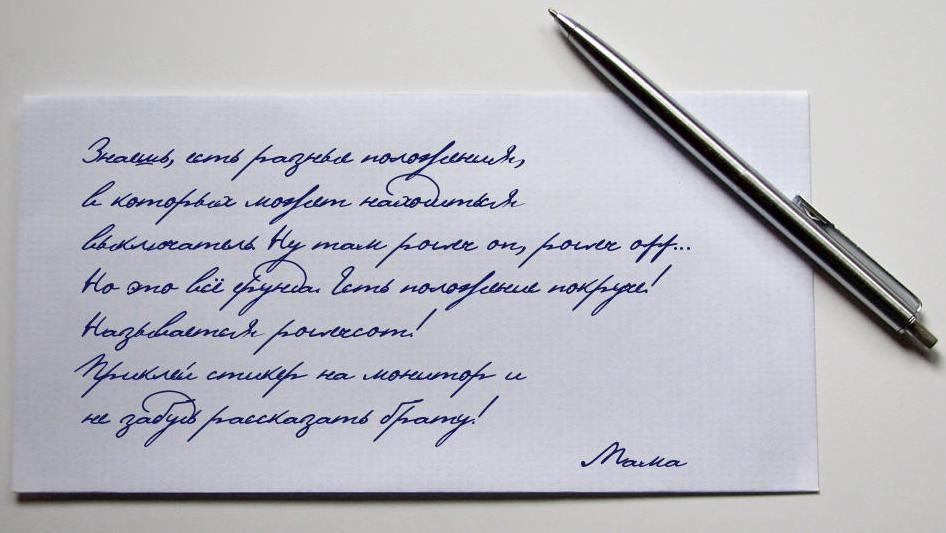 Знаешь, есть разные положения,
в которых может находиться
выключатель. Ну там power on, power off...
Но это всё фунда. Есть положение покруче!
Называется powercom!
Приклей стикер на монитор и
не забудь рассказать брату!
Мама